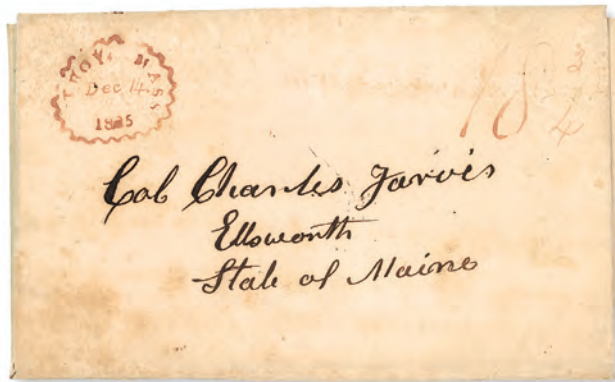 TROY MASS
Dec 14
1835
18
Col Charles Jarvis
Ellsworth
State of Maine